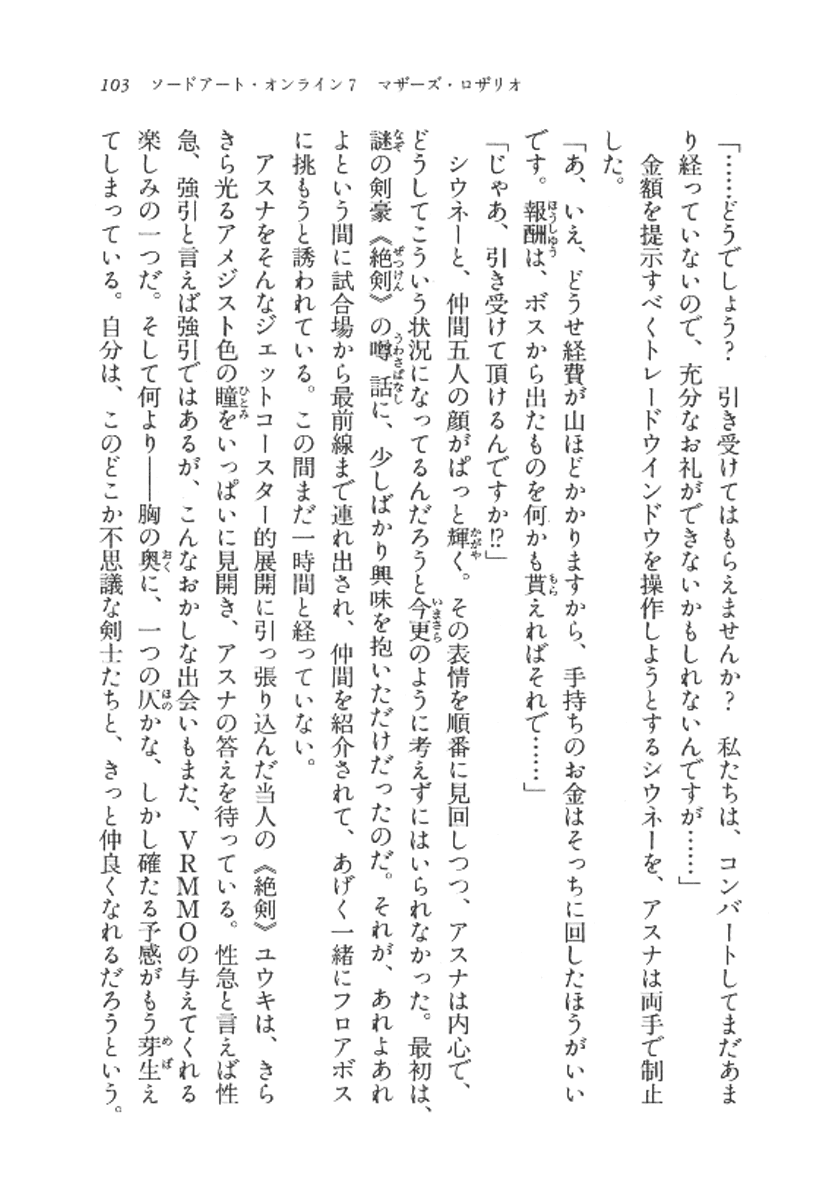 103　ソードアート・オンライン7　マザーズ・ロザリオ
「……どうでしょう？　引き受けてはもらえませんか？　私たちは、コンバートしてまだあま
り経っていないので、充分なお礼ができないかもしれないんですが……」
　金額を提示すべくトレードウインドウを操作しようとするシウネーを、アスナは両手で制止
した。
「あ、いえ、どうせ経費が山ほどかかりますから、手持ちのお金はそっちに回したほうがいい
です。報酬は、ボスから出たものを何かも貰えればそれで……」
「じゃあ、引き受けて頂けるんですか!?」
　シウネーと、仲間五人の顔がぱっと輝く。その表情を順番に見回しつつ、アスナは内心で、
どうしてこういう状況になってるんだろうと今更のように考えずにはいられなかった。最初は、
謎の剣豪《絶剣》の噂話に、少しばかり興味を抱いただけだったのだ。それが、あれよあれ
よという間に試合場から最前線まで連れ出され、仲間を紹介されて、あげく一緒にフロアボス
に挑もうと誘われている。この間まだ一時間と経っていない。
　アスナをそんなジェットコースター的展開に引っ張り込んだ当人の《絶剣》ユウキは、きら
きら光るアメジスト色の瞳をいっぱいに見開き、アスナの答えを待っている。性急と言えば性
急、強引と言えば強引ではあるが、こんなおかしな出会いもまた、ＶＲＭＭＯの与えてくれる
楽しみの一つだ。そして何より――胸の奥に、一つの仄かな、しかし確たる予感がもう芽生え
てしまっている。自分は、このどこか不思議な剣士たちと、きっと仲良くなれるだろうという。